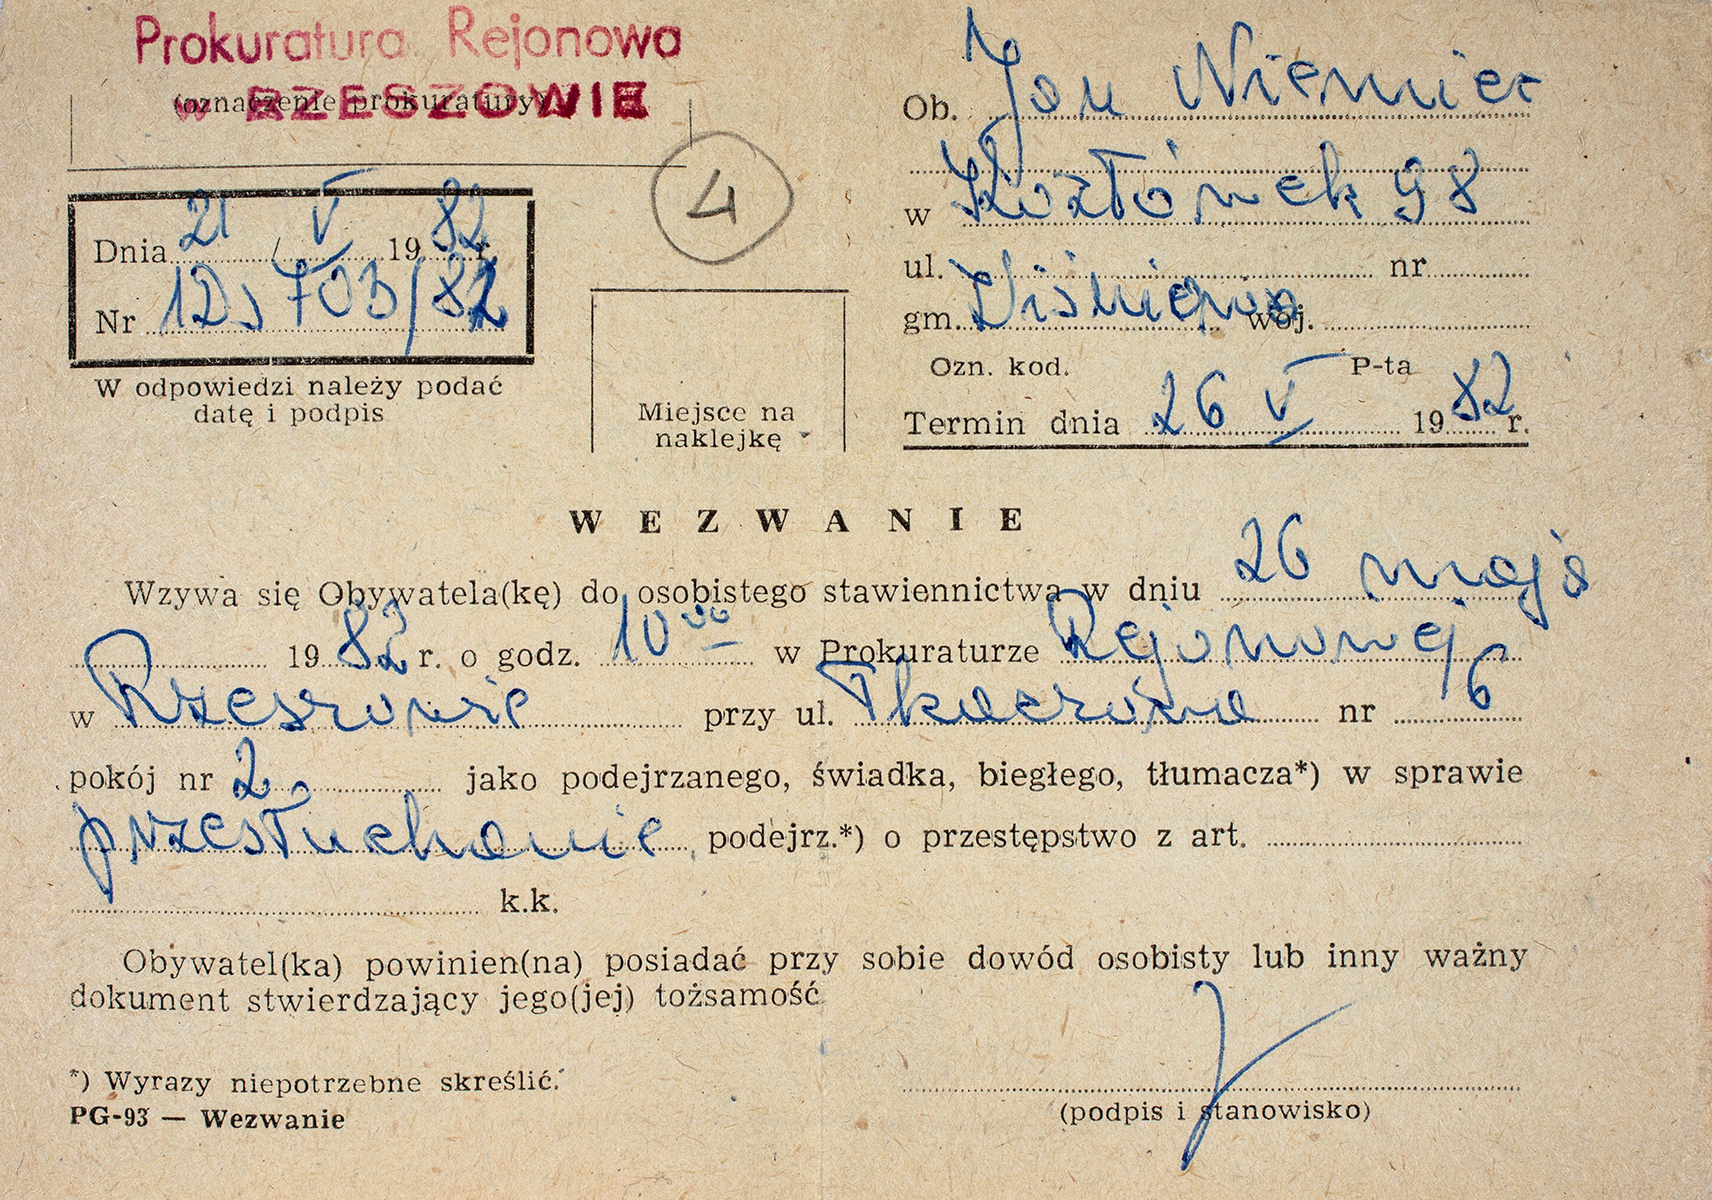 Prokuratura Rejonowa
w RZESZOWIE
(oznaczenie prokuratury)
4
Dnia 21 / V 1982 r.
Nr 1Ds 703/82
W odpowiedzi należy podać
datę i podpis
Miejsce na
naklejkę
Ob. Jan Niemier
w Kozłówek 98
ul. nr
gm. Wiśniowa woj.
Ozn. kod. P-ta
Termin dnia 26 V 1982 r.
WEZWANIE
Wzywa się Obywatela(kę) do osobistego stawiennictwa w dniu 26 maja
1982 r. o godz. 10⁰⁰ w Prokuraturze Rejonowej
w Rzeszowie przy ul. Tkaczowa nr 6
pokój nr 2 jako podejrzanego, świadka, biegłego, tłumacza*) w sprawie
przesłuchanie podejrz.*) o przestępstwo z art.
k.k.
Obywatel(ka) powinien(na) posiadać przy sobie dowód osobisty lub inny ważny
dokument stwierdzający jego(jej) tożsamość
*) Wyrazy niepotrzebne skreślić.
PG-93 — Wezwanie
(podpis i stanowisko)